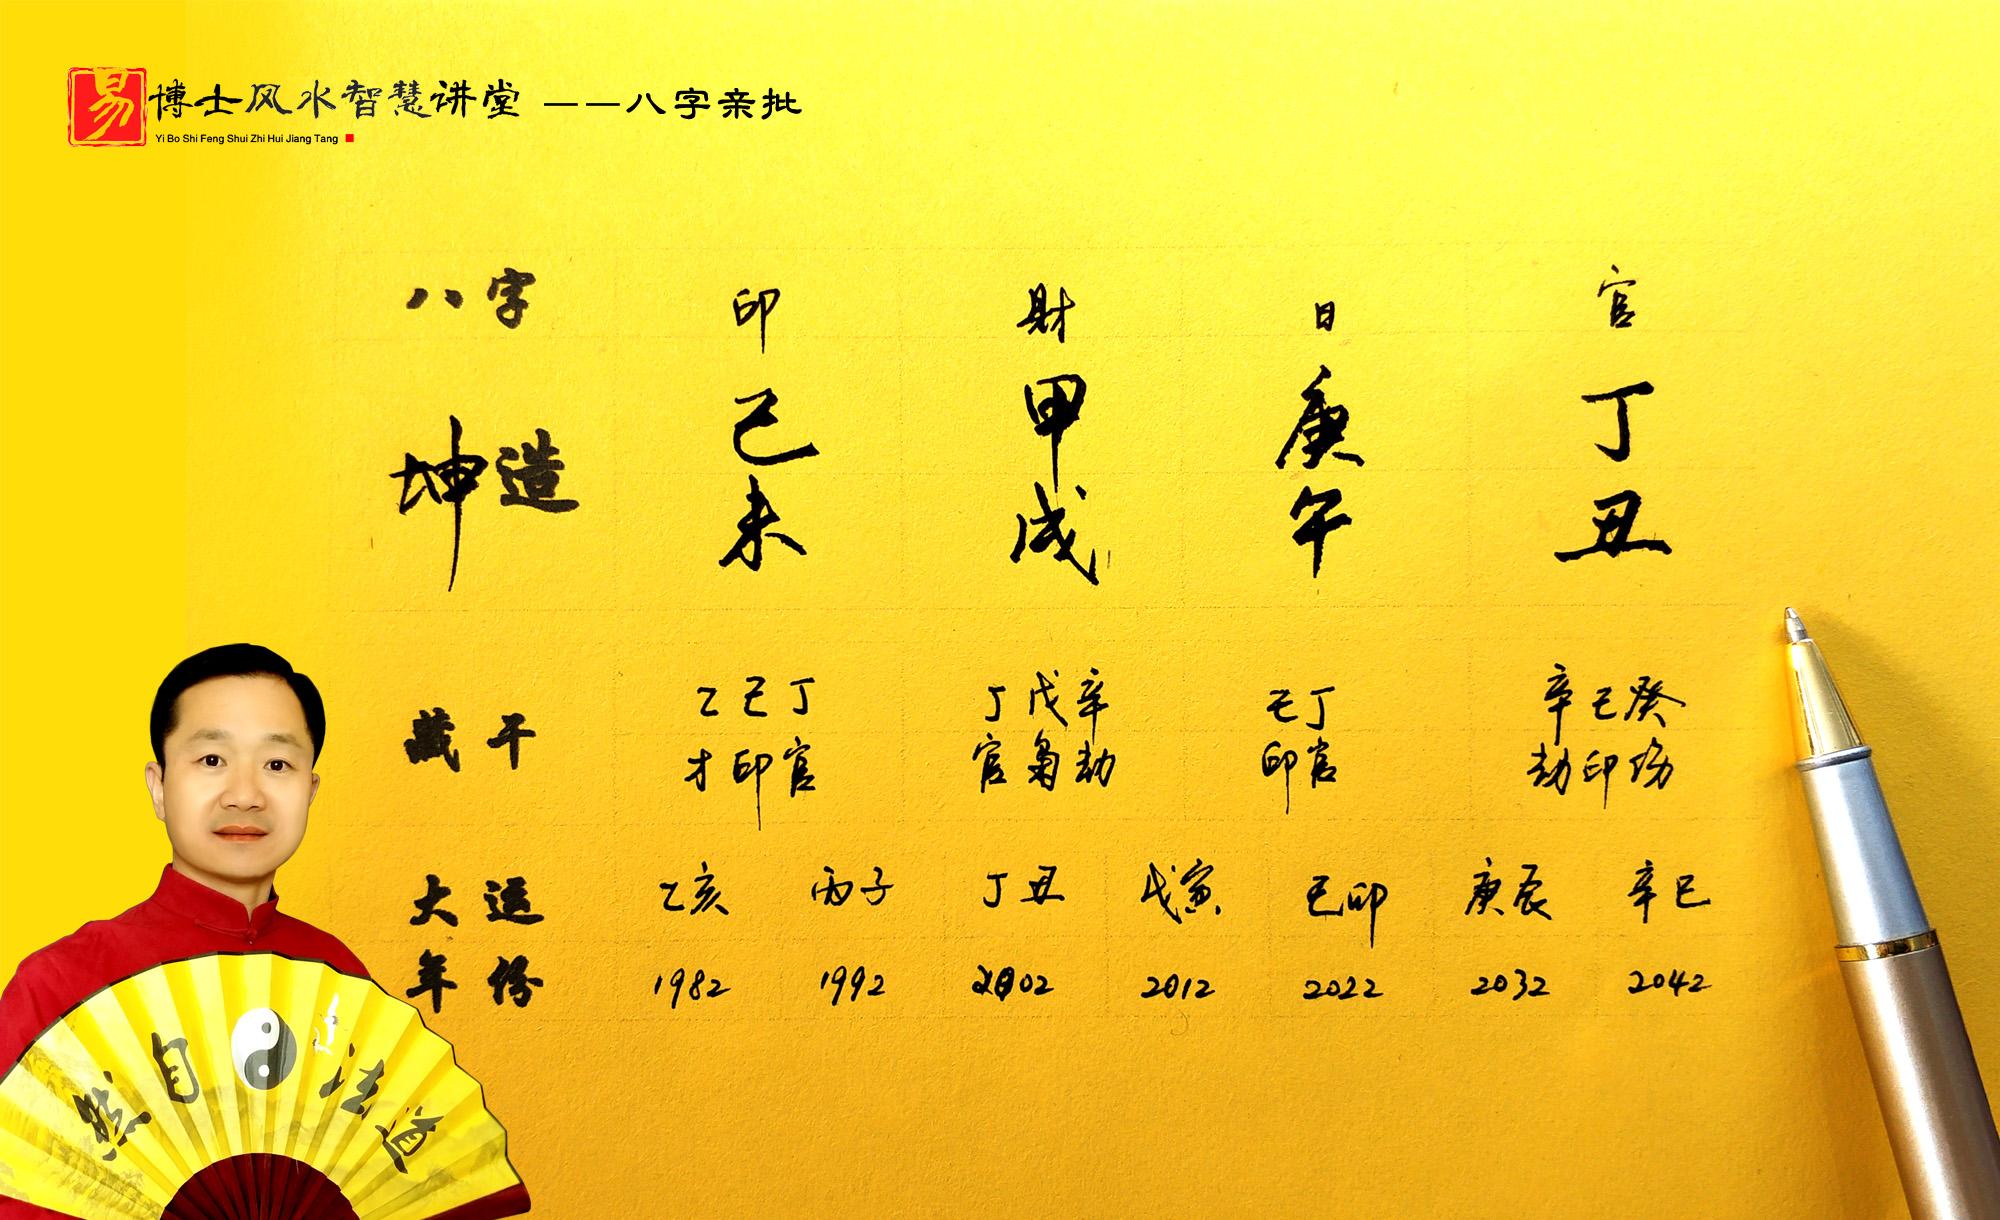 易博士风水智慧讲堂 ——八字亲批
Yi Bo Shi Feng Shui Zhi Hui Jiang Tang
八字 印 财 日 官
坤造 己 甲 庚 丁
未 戌 午 丑
藏干 乙己丁 丁戊辛 己丁 辛己癸
才印官 官枭劫 印官 劫印伤
大运 乙亥 丙子 丁丑 戊寅 己卯 庚辰 辛巳
年份 1982 1992 2002 2012 2022 2032 2042
道法自然